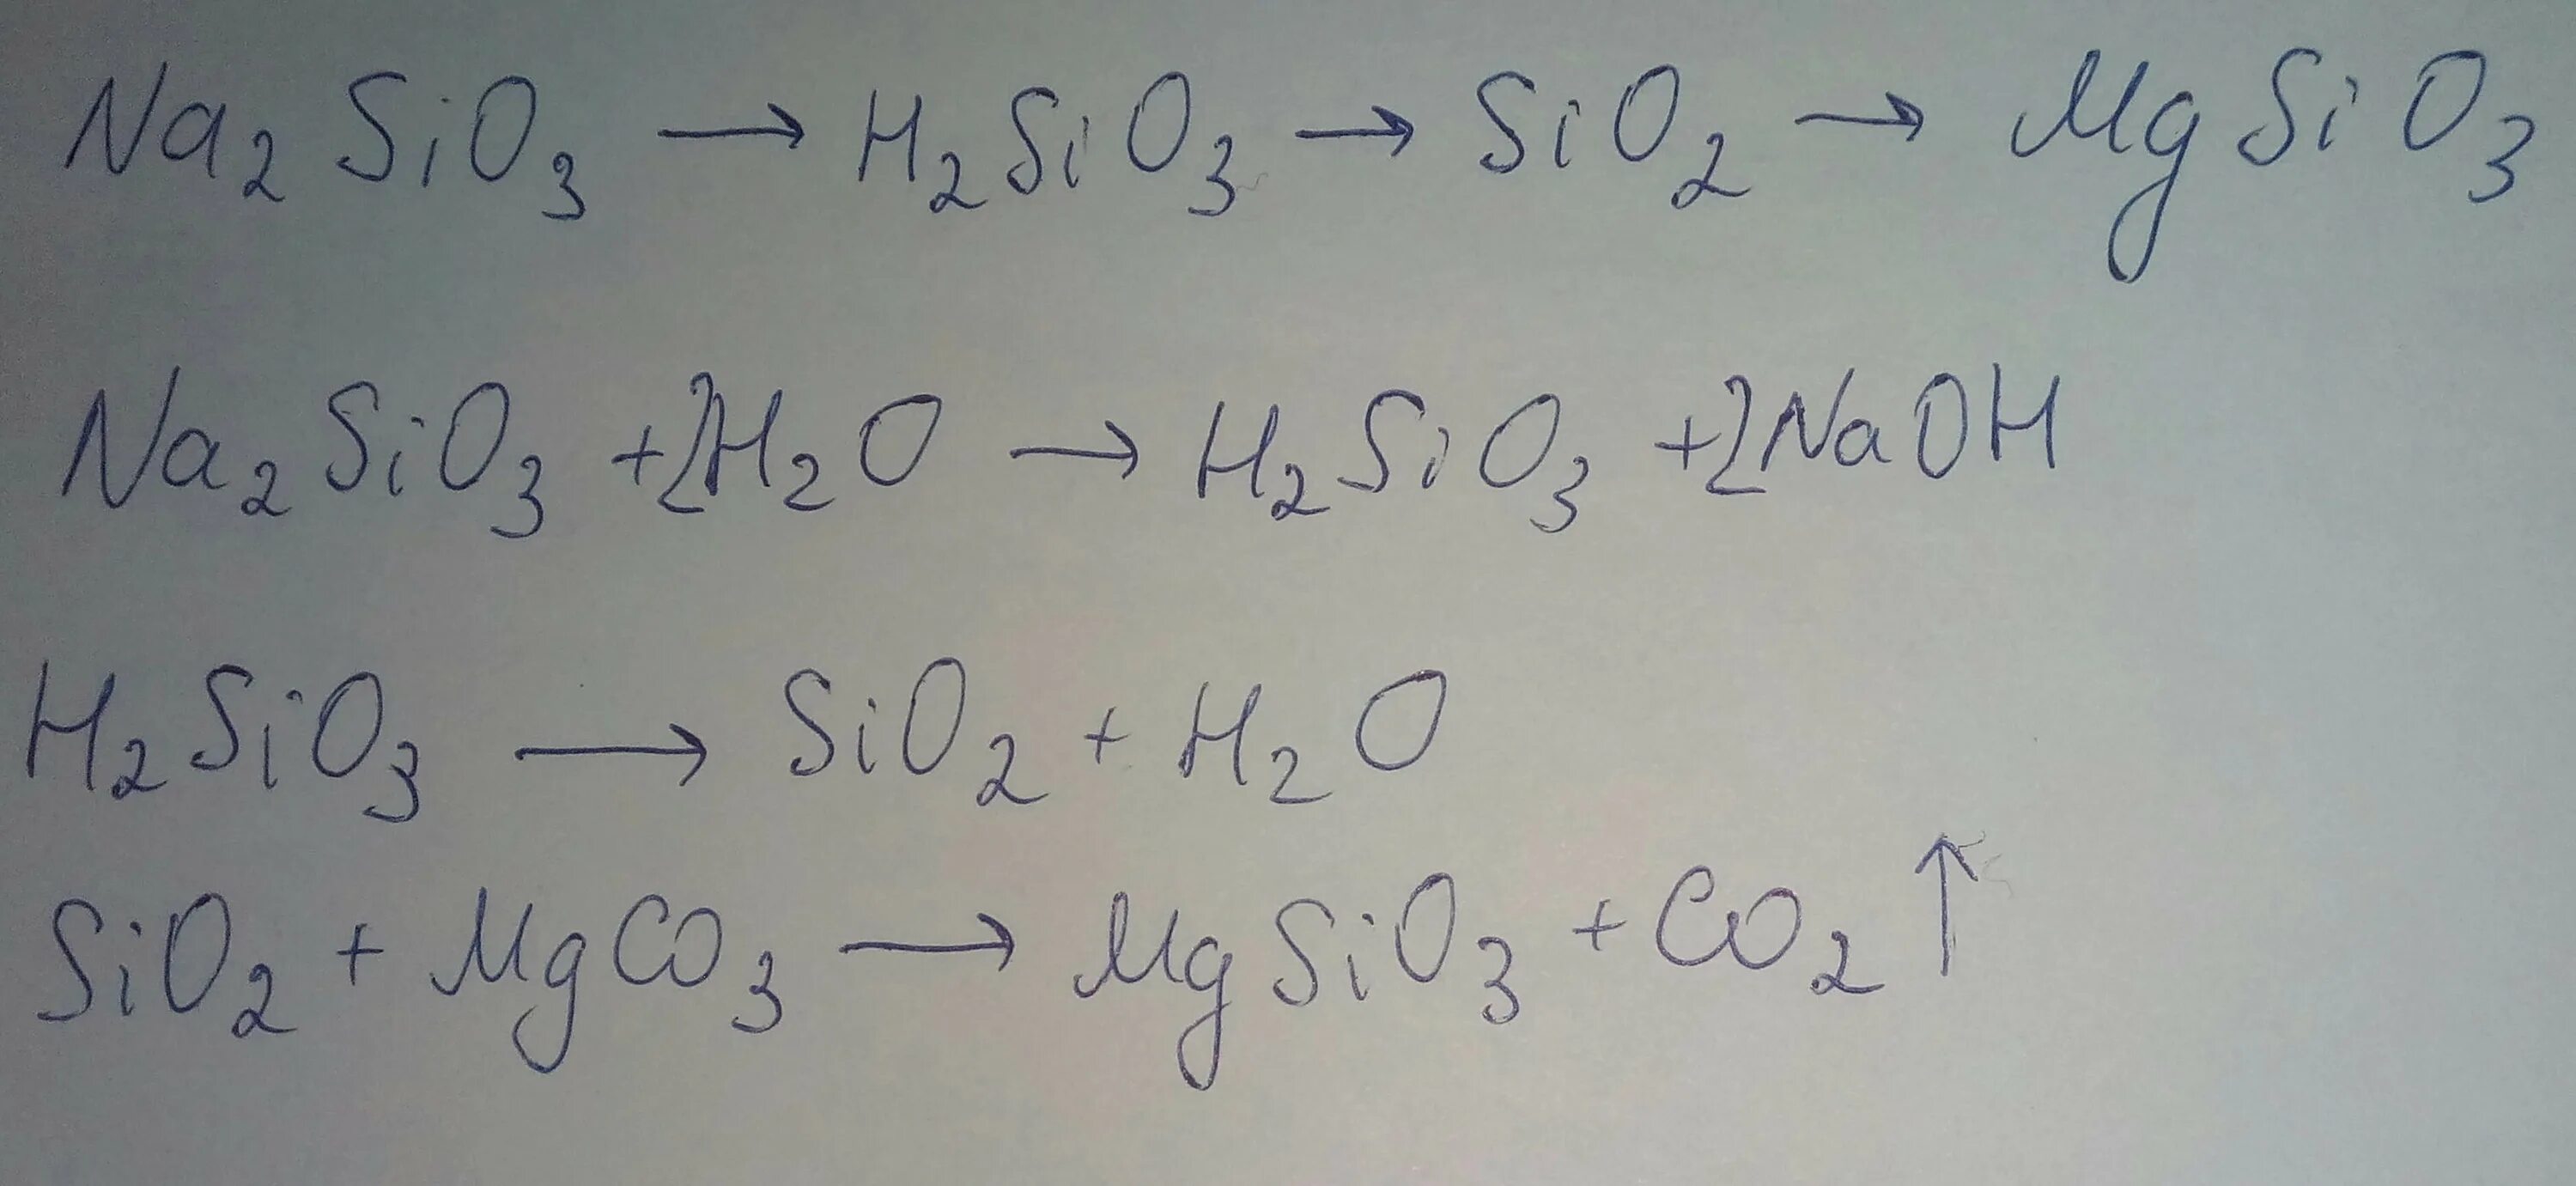 Na₂SiO₃ → H₂SiO₃ → SiO₂ → MgSiO₃
Na₂SiO₃ + 2H₂O → H₂SiO₃ + 2NaOH
H₂SiO₃ → SiO₂ + H₂O
SiO₂ + MgCO₃ → MgSiO₃ + CO₂↑